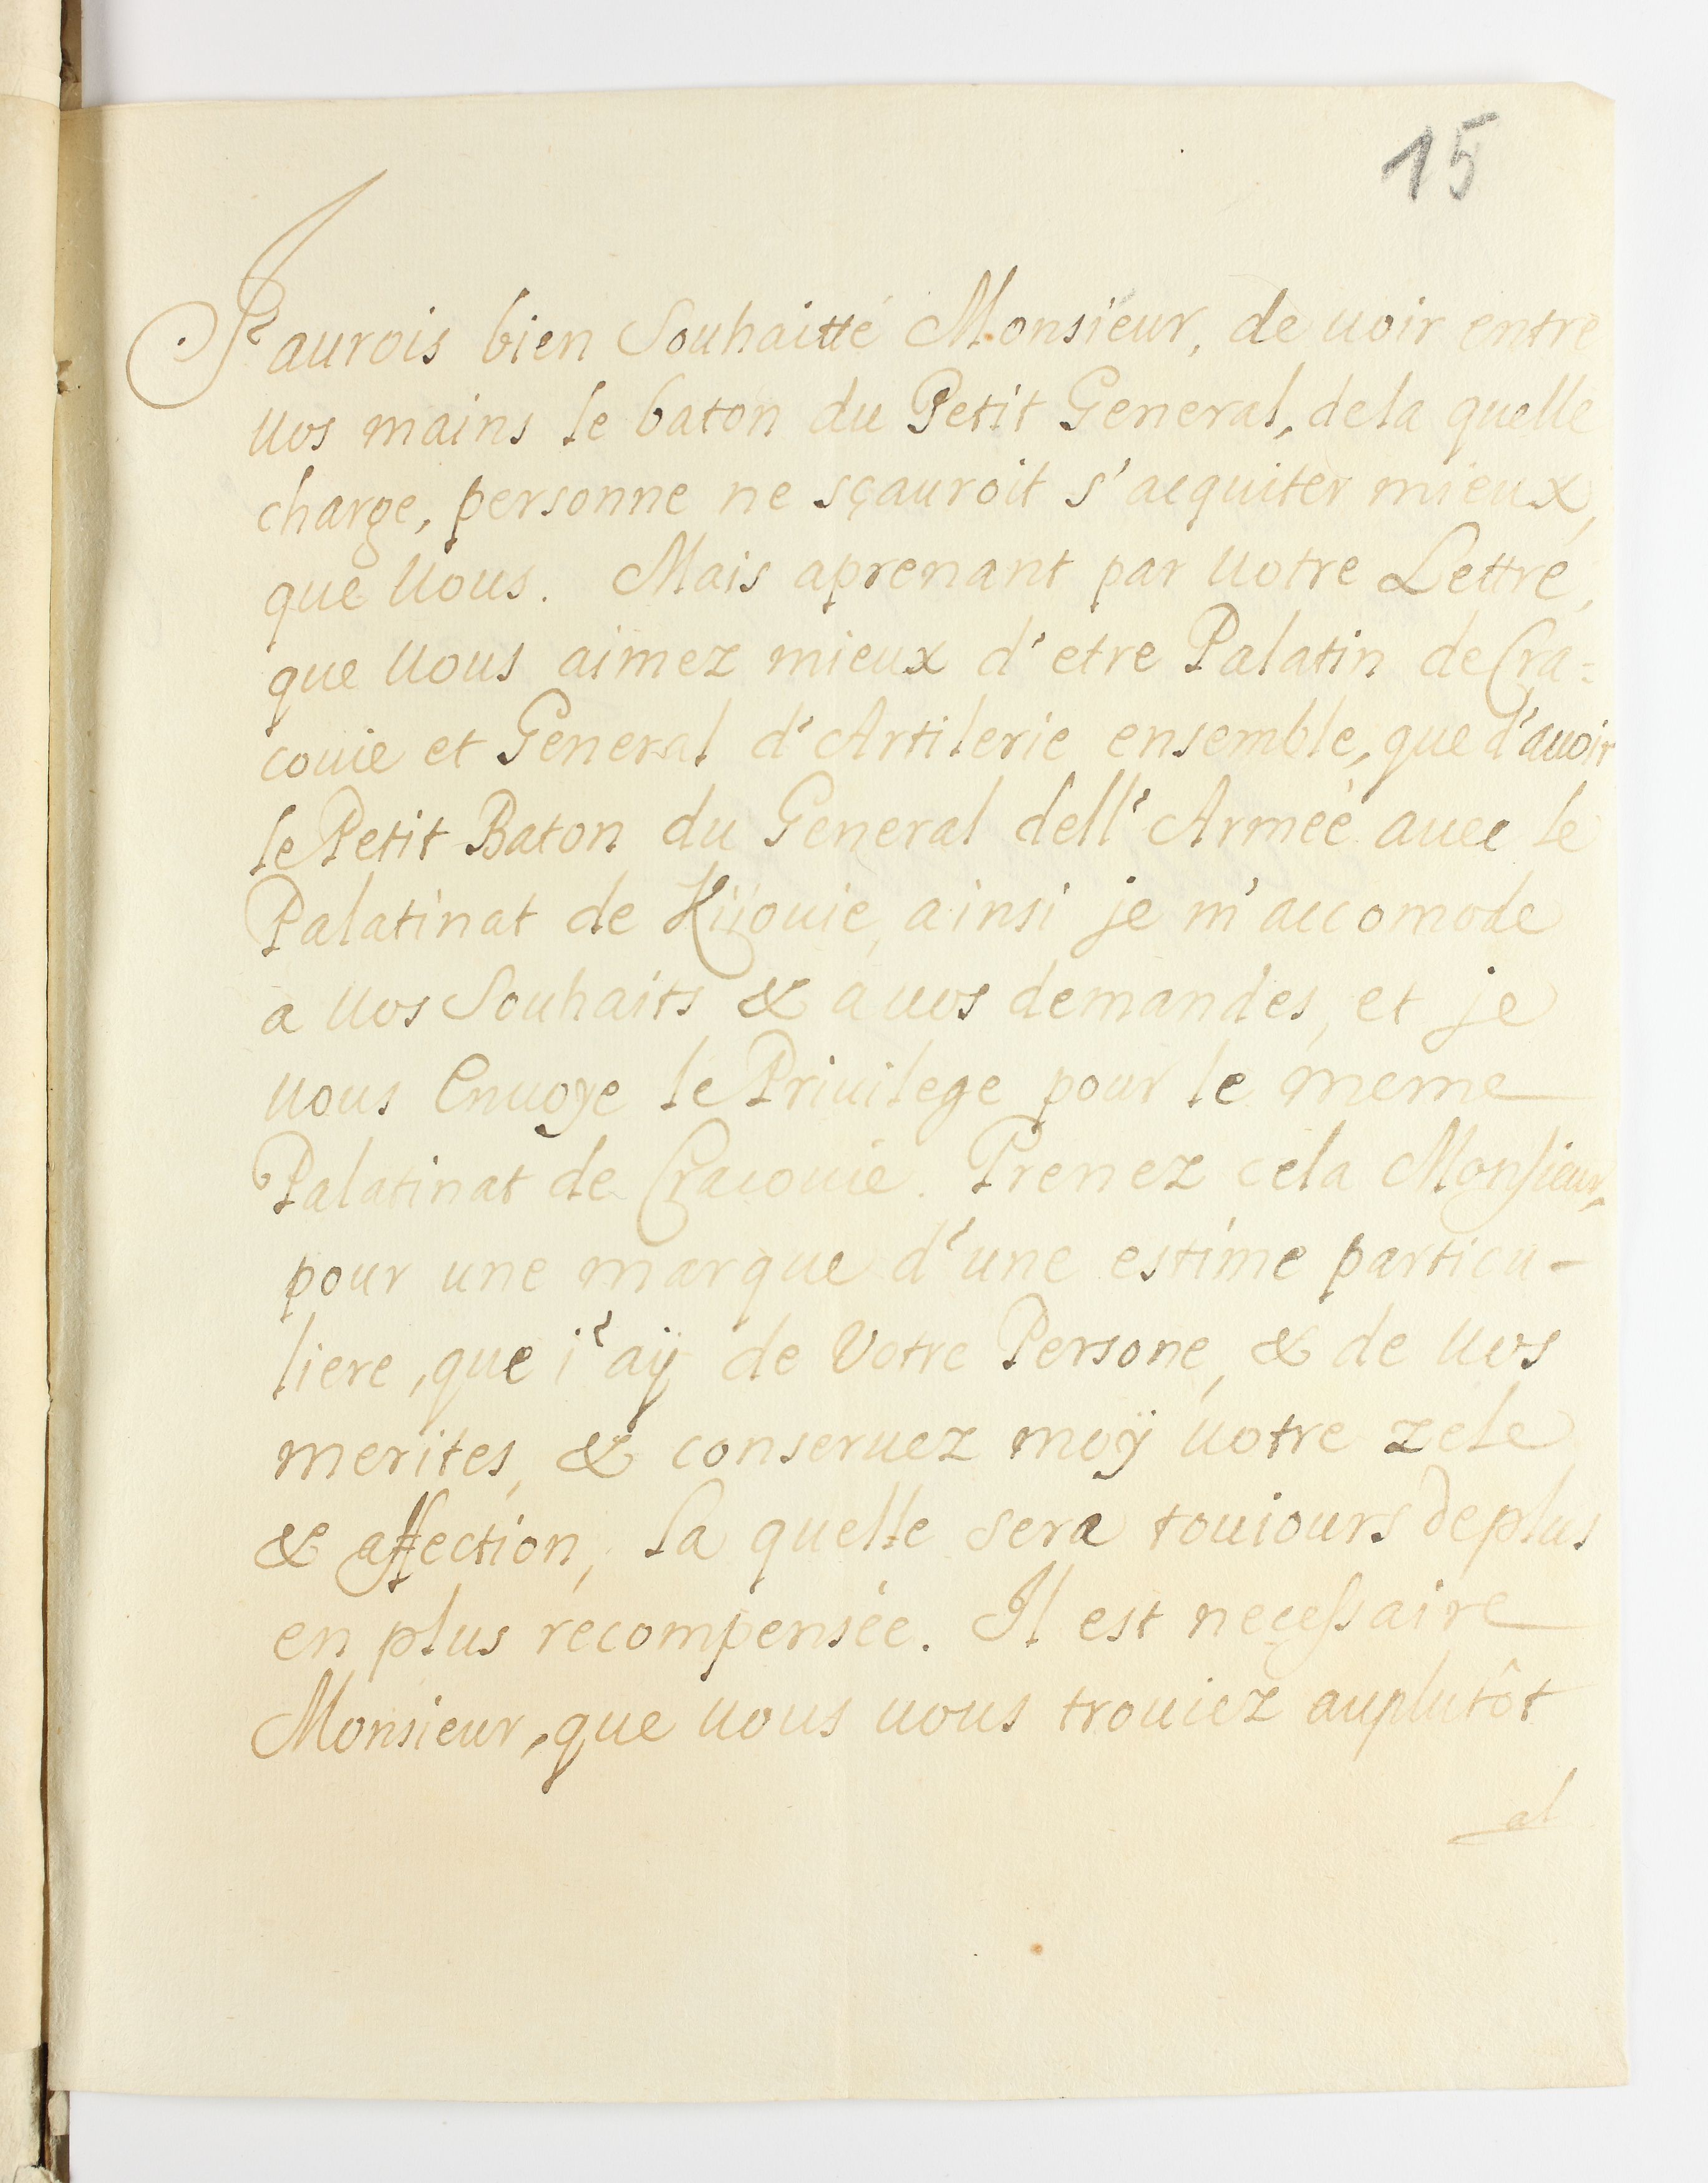 15
J'aurois bien Souhaitté Monsieur, de uoir entre
uos mains le baton du Petit General, dela quelle
charge, personne ne sçauroit s'acquiter mieux,
que Uous. Mais aprenant par Uotre Lettre,
que Uous aimez mieux d'etre Palatin de Cra=
couie et General d'Artilerie ensemble, que d'auoir
le Petit Baton du General dell'Armée auec le
Palatinat de Kijouie, ainsi je m'accomode
a Uos Souhaits & a uos demandes, et je
uous Enuoye le Priuilege pour le meme
Palatinat de Cracouie. Prenez cela Monsieur,
pour une marque d'une estime particu-
liere, que i'aÿ de Votre Persone, & de Uos
merites, & conseruez moÿ uotre zele
& affection, la quelle sera touiours de plus
en plus recompensée. Il est necessaire
Monsieur, que uous uous trouiez auplutôt
al